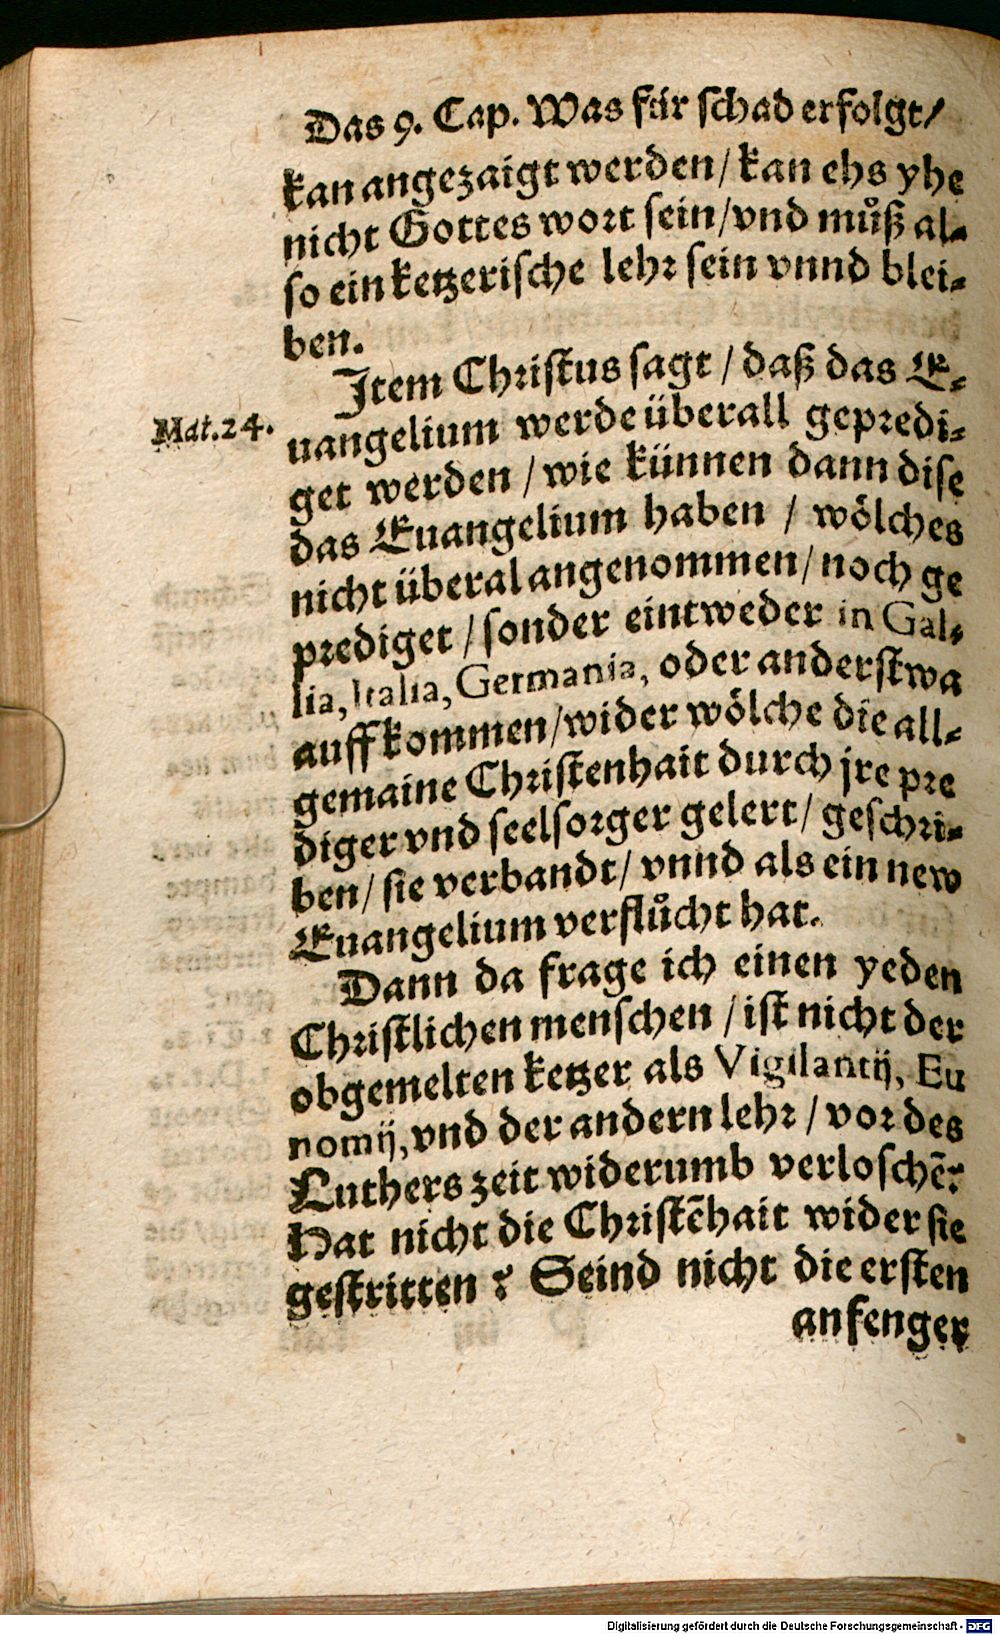 Das 9. Cap. Was für schad erfolgt/
kan angezaigt werden/ kan ehs yhe
nicht Gottes wort sein/ vnd můß al-
so ein ketzerische lehr sein vnnd blei-
ben.
Item Christus sagt / daß das E-
Mat.24.
uangelium werde überall gepredi-
get werden / wie künnen dann dise
das Euangelium haben / wölches
nicht überal angenommen/ noch ge
prediget / sonder eintweder in Gal-
lia, Italia, Germania, oder anderstwa
auffkommen/ wider wölche die all-
gemaine Christenhait durch jre pre
diger vnd seelsorger gelert/ geschri-
ben/ sie verbandt/ vnnd als ein new
Euangelium verflůcht hat.
Dann da frage ich einen yeden
Christlichen menschen / ist nicht der
obgemelten ketzer als Vigilantij, Eu
nomij, vnd der andern lehr / vor des
Luthers zeit widerumb verloschẽ?
Hat nicht die Christẽhait wider sie
gestritten ? Seind nicht die ersten
anfenger
Digitalisierung gefördert durch die Deutsche Forschungsgemeinschaft - DFG